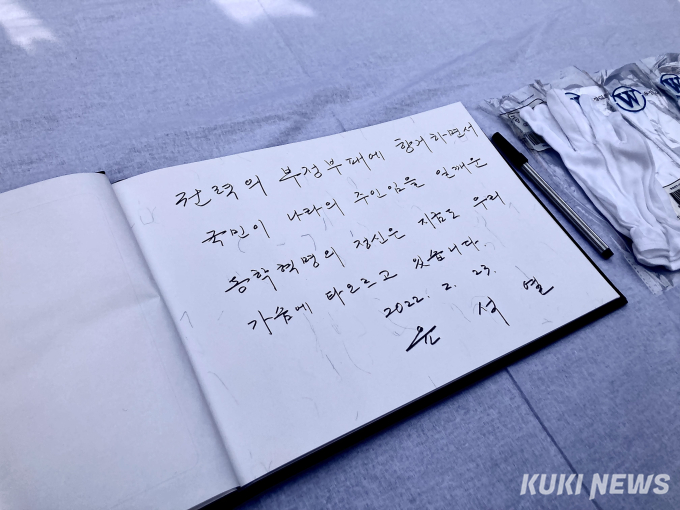 권력의 부정부패에 항거하면서
국민이 나라의 주인임을 일깨운
동학혁명의 정신은 지금도 우리
가슴에 타오르고 있습니다.
2022. 2. 23.
윤 석 열
W
KUKI NEWS